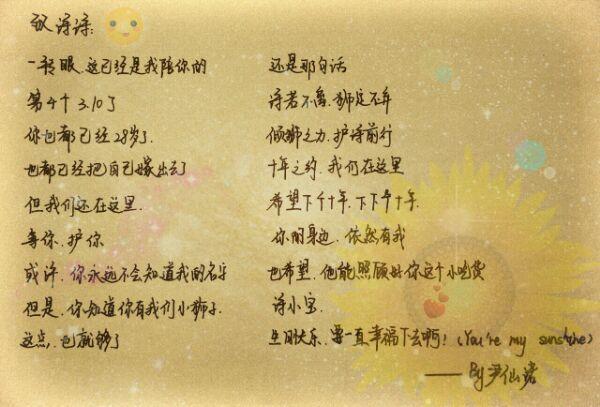 致诗诗:
一转眼.这已经是我陪你的
第4个3.10了
你也都已经28岁了.
也都已经把自己嫁出去了
但我们还在这里.
等你.护你
或许.你永远不会知道我的名字
但是.你知道你有我们小狮子.
这点.也就够了
还是那句话
诗若不离.狮定不弃
倾狮之力.护诗前行
十年之约.我们在这里
希望下个十年.下下个十年.
你的身边.依然有我
也希望.他能照顾好你这个小吃货
诗小宝.
生日快乐.要一直幸福下去啊!(You're my sunshine)
——By尹仙